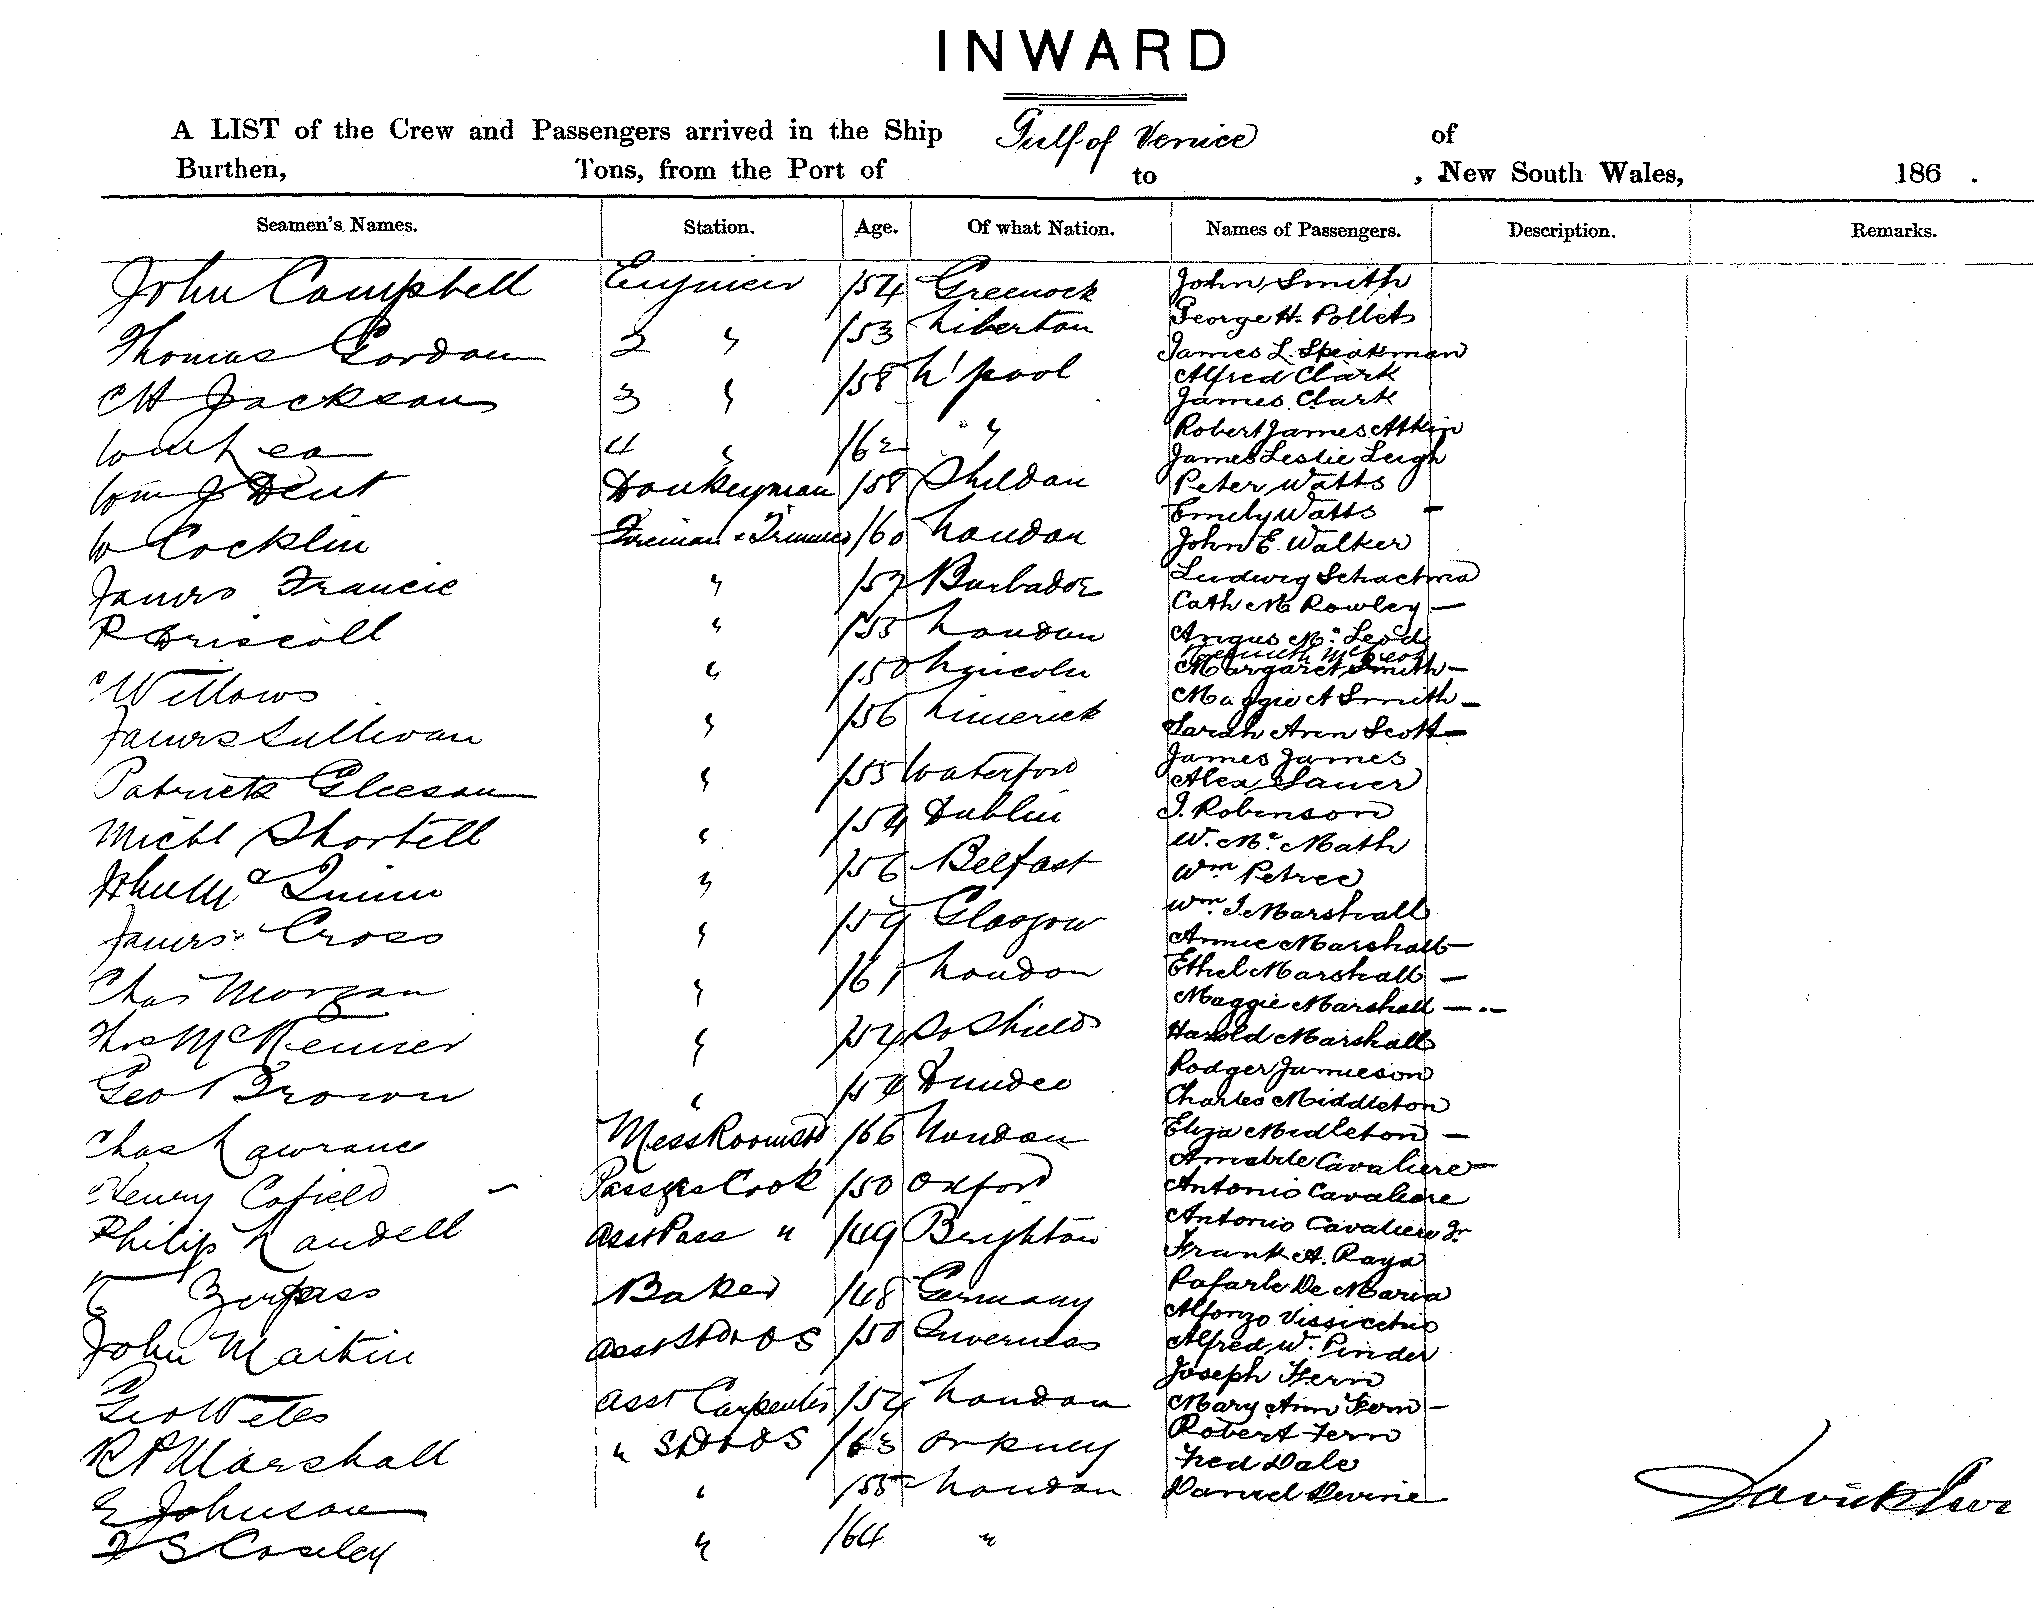 INWARD
A LIST of the Crew and Passengers arrived in the Ship Gulf of Venice of
Burthen, Tons, from the Port of to , New South Wales, 186 .
Seamen's Names. Station. Age. Of what Nation. Names of Passengers. Description. Remarks.
John Campbell Engineer /54 Greenock
Thomas Gordon 2 " /53 Liberton
CH Jackson 3 " /58 L'pool
Wm Lea 4 " /62 "
Wm J Dent Donkeyman /58 Shildon
W Cocklin Fireman & Trimmer /60 London
James Francis " /57 Barbados
R Driscoll " /55 London
C Willows " /50 Lincoln
James Sullivan " /56 Limerick
Patrick Gleeson " /55 Waterford
Michl Shortell " /54 Dublin
John Mc Quinn " /56 Belfast
James Cross " /59 Glasgow
Chas Morgan " /61 London
Thos McKenner " /54 So Shields
Geo Brown " /54 Dundee
Chas Lawrance Mess Room Std /66 London
Henry Cofield Passgrs Cook /50 Oxford
Philip Landell Asst Pass " /49 Brighton
Baker /48 Germany
John Martin Asst Std & OS /50 Inverness
Geo Asst Carpenter /54 London
R P Marshall " Std & OS /63 Orkney
E Johnson " /55 London
S Coseley " /64 "
John Smith
George H. Pollets
James L. Speakman
Alfred Clark
James Clark
Robert James Atkin
James Leslie Leigh
Peter Watts
Emily Watts -
John E. Walker
Ludwig
Cath M Rowley -
Angus Mc Leod
Kenneth McLeod
Margaret Smith -
Maggie A Smith -
Sarah Ann Scott -
James James
Alex Sauer
J. Robinson
W. Mc Math
Wm Petree
Wm J Marshall
Annie Marshall -
Ethel Marshall -
Maggie Marshall - -
Harold Marshall
Rodger Jamieson
Charles Middleton
Eliza Midleton -
Amabile Cavaliere -
Antonio Cavaliere
Antonio Cavaliere Jr
Frank A. Raya
Rafarle De Maria
Alfonzo
Alfred W. Pinder
Joseph Fern
Mary Ann Fern -
Robert Fern
Fred Dale
Daniel Devine